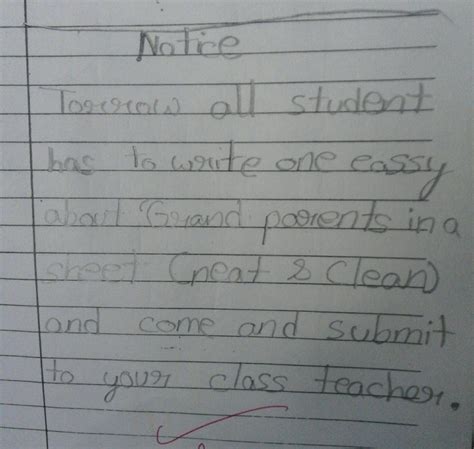 Notice
Tomorrow all student
has to write one eassy
about Grand parents in a
sheet (neat & Clean)
and come and submit
to your class teacher.